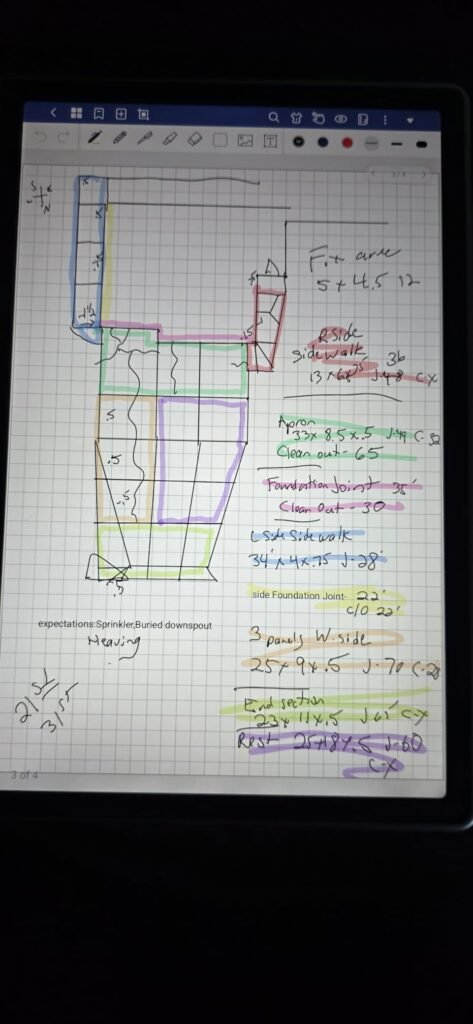 Fix area
5 + 4.5 12
R Side
Sidewalk 36
13 x 6 x .75 J-48 C-X
Apron
33x 8.5 x .5 J-49 C-32
Clean out- 65
Foundation Joint 35'
Clean Out- 30
L Side Sidewalk
34' x 4 x .75 J-28'
side Foundation Joint- 22'
c/o 22'
3 panels W. side
25 x 9 x .5 J-70 C-28
End section
23 x 11 x .5 J-65' C-X
Rest 25x18x.5 J-60
C-X
expectations:Sprinkler,Buried downspout
Heaving
3 of 4
S
N
.5
.5
.5
.5
.5
.5
T